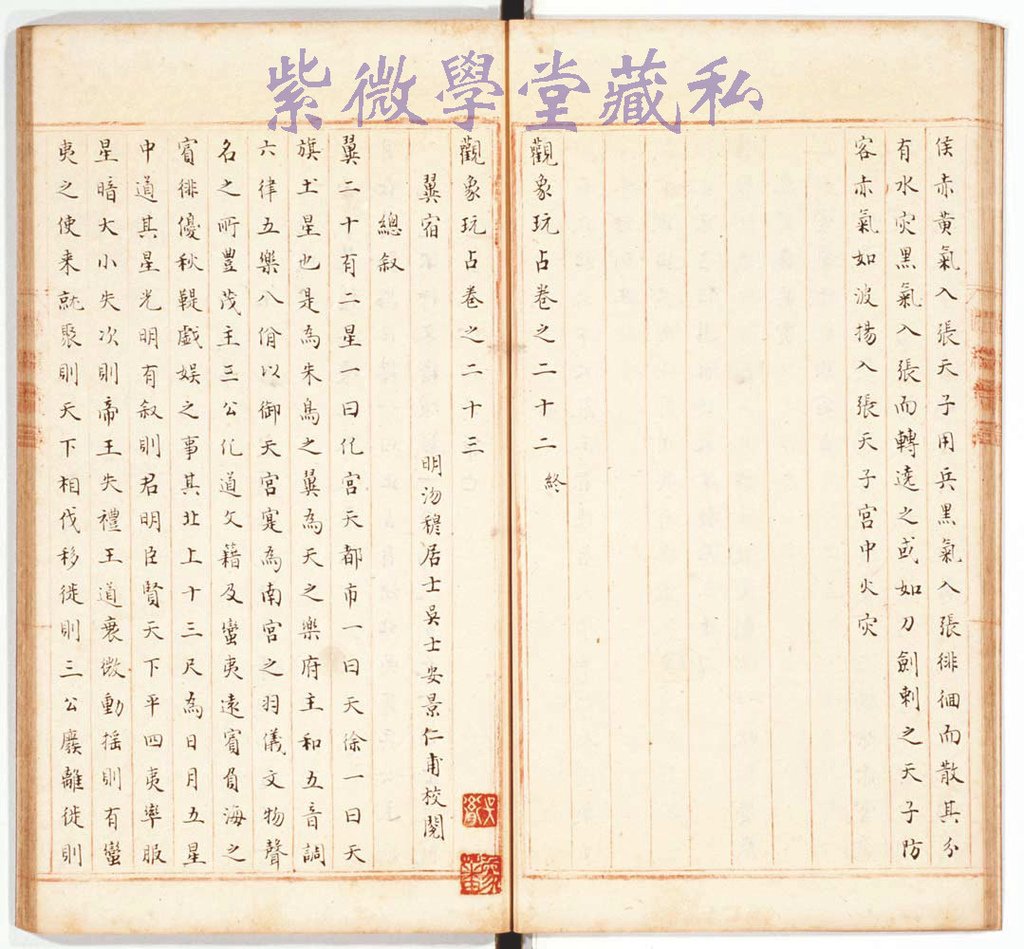 紫微學堂藏私
侯赤黃氣入張天子用兵黑氣入張徘徊而散其分
有水灾黑氣入張而轉遶之或如刀劍刺之天子防
客赤氣如波揚入張天子宮中火灾
觀象玩占卷之二十二 終
觀象玩占卷之二十三
明沕穆居士吳士安景仁甫校閱
翼宿
總叙
翼二十有二星一曰化宮天都市一曰天徐一曰天
旗土星也是為朱鳥之翼為天之樂府主和五音調
六律五樂八佾以御天宮寔為南宮之羽儀文物聲
名之所豐茂主三公化道文籍及蠻夷遠賓負海之
賓徘優秋鞮戲娛之事其北上十三尺為日月五星
中道其星光明有叙則君明臣賢天下平四夷率服
星暗大小失次則帝王失禮王道衰微動搖則有蠻
夷之使来就聚則天下相伐移徙則三公廢離徙則